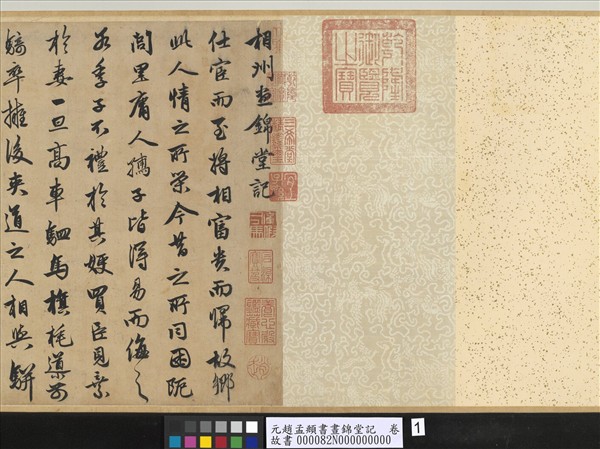 乾隆御覽之寶
相州晝錦堂記
仕宦而至將相富貴而歸故鄉
此人情之所榮今昔之所同困阨
閭里庸人孺子皆得易而侮之
若季子不禮於其嫂買臣見棄
於妻一旦高車駟馬旗旄導前
騎卒擁後夾道之人相與駢
元趙孟頫書晝錦堂記 卷
故書 000082N000000000
1